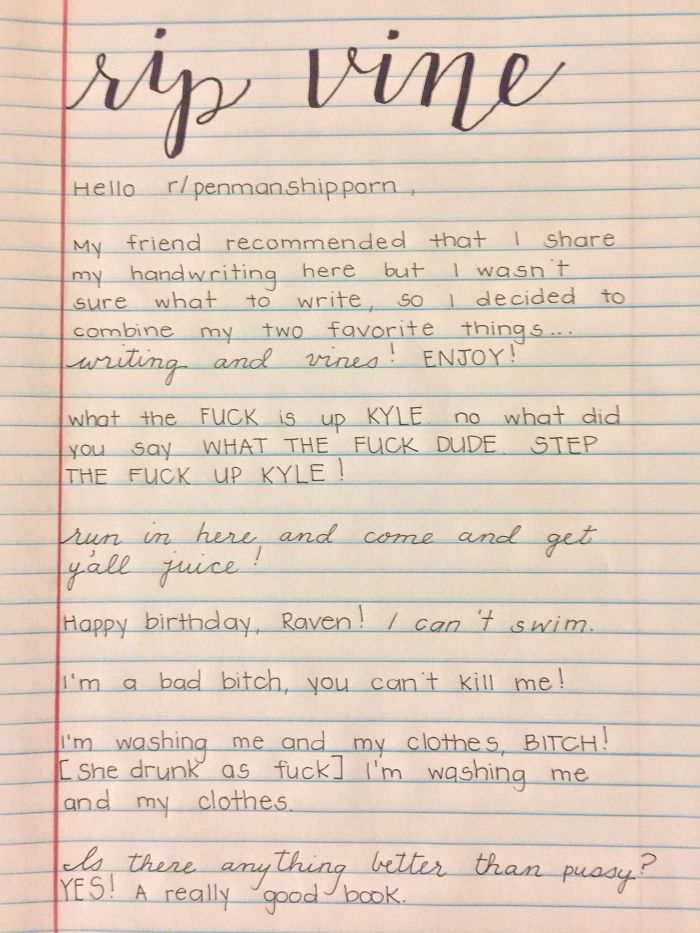 rip vine
Hello r/penmanshipporn,
My friend recommended that I share
my handwriting here but I wasn't
sure what to write, so I decided to
combine my two favorite things...
writing and vines! ENJOY!
what the FUCK is up KYLE. no what did
you say WHAT THE FUCK DUDE. STEP
THE FUCK UP KYLE!
run in here and come and get
y'all juice!
Happy birthday, Raven! I can't swim.
I'm a bad bitch, you can't kill me!
I'm washing me and my clothes, BITCH!
[she drunk as fuck] I'm washing me
and my clothes.
Is there anything better than pussy?
YES! A really good book.